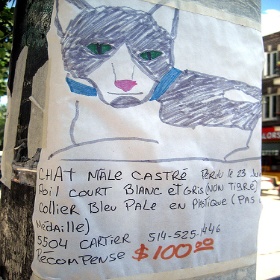 CHAT MALE CASTRÉ Perdu le 23 Jui
Poil COURT BLANC et GRIS (NON TIBRÉ)
Collier Bleu PALE en PlASTiQUE (PAS
Médaille)
5504 CARTIER 514-525-446
RECOMPENSE $100.00